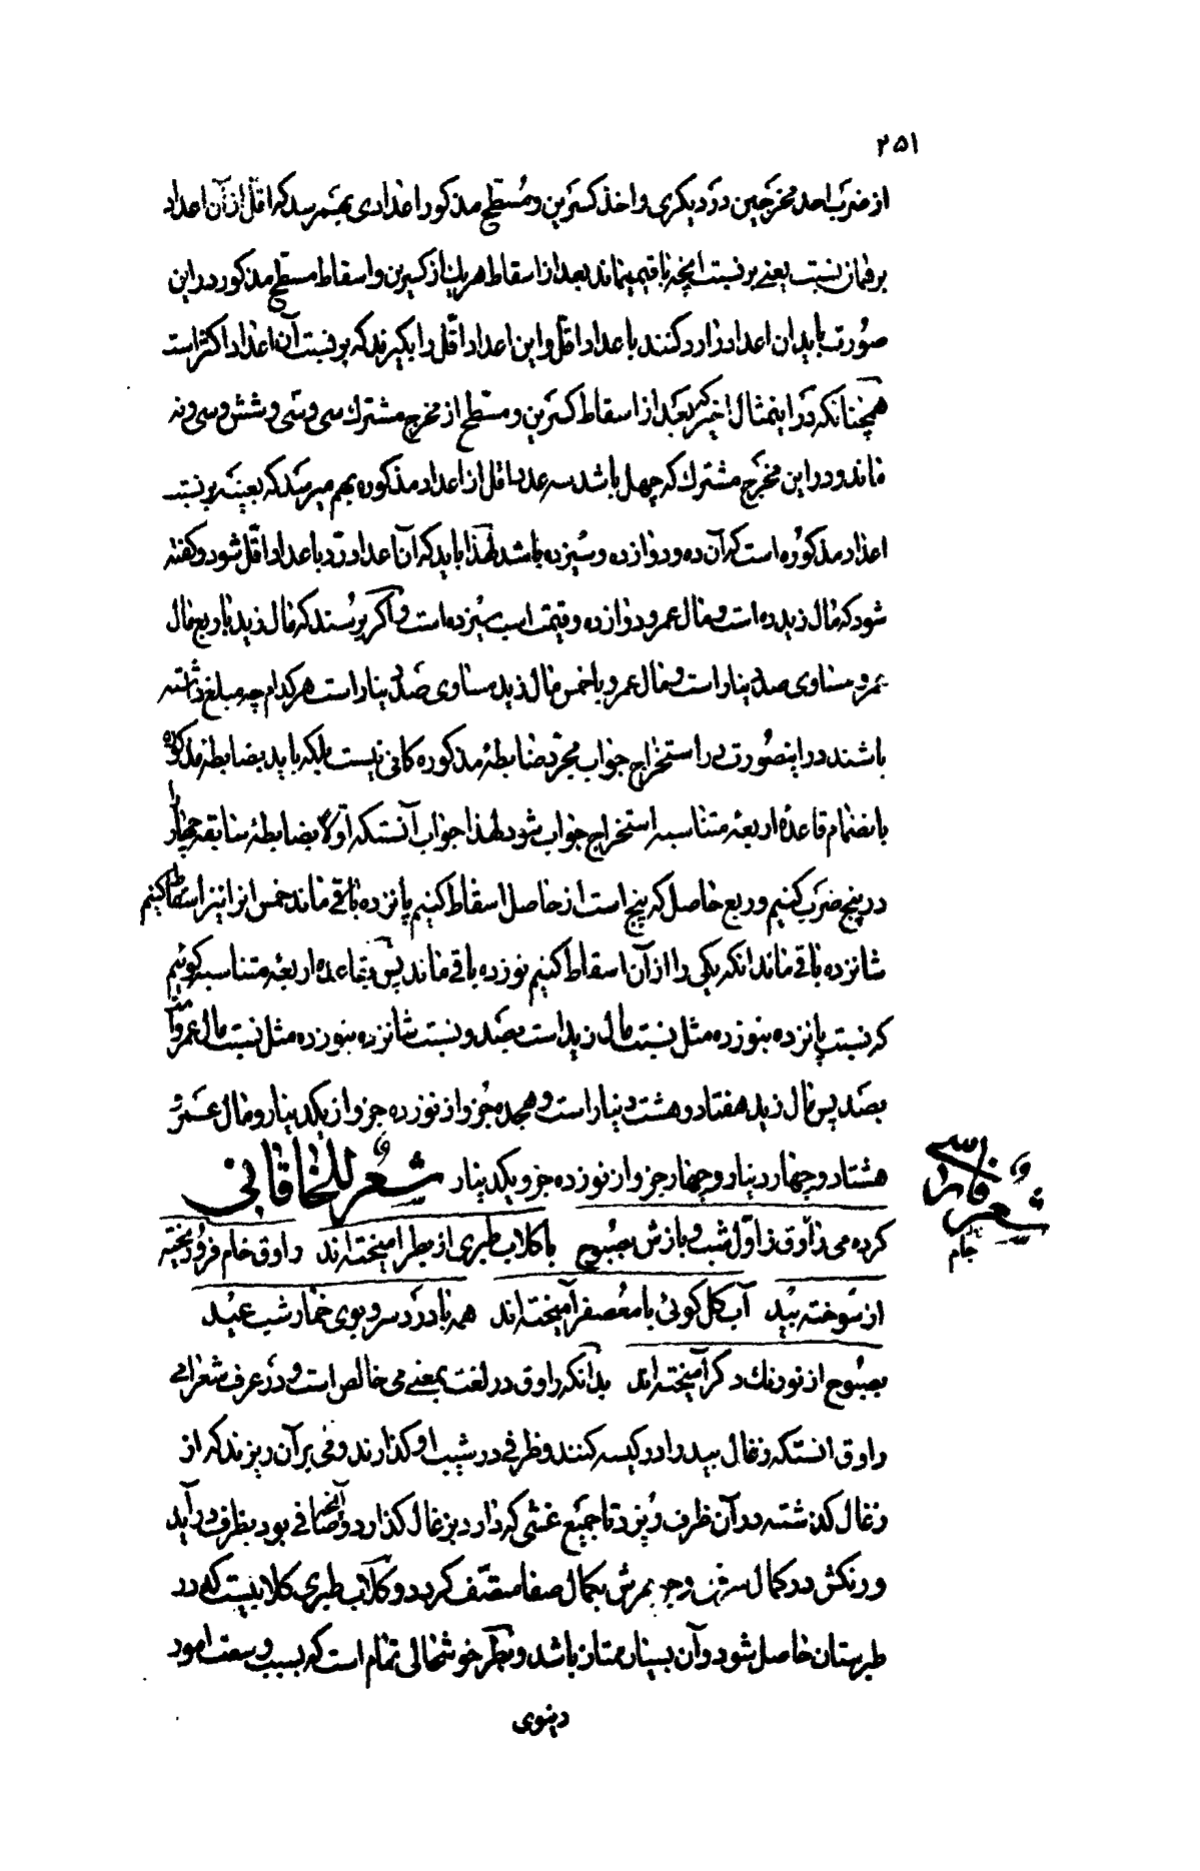 ۲۵۱
از ضرب احد مخرجین در دیکری و اخذ کسرین و مسطح مذکور اعدادی بهم رسد که اقل از آن اعداد
بر همان نسبت یعنی بر نسبت آنچه باقی میماند بعد از اسقاط هر یك از کسرین و اسقاط مسطح مذکور در این
صورت باید آن اعداد را رد کنند با عداد اقل و این اعداد اقل را بکیرند که بر نسبت آن اعداد اکثر است
همچنانکه در اینمثال اخیر که بعد از اسقاط کسرین و مسطح از مخرج مشترك سی و سی و شش و سی و نه
ماند و در این مخرج مشترك که چهل باشد سه عدد اقل از اعداد مذکوره بهم میرسد که بعینه بر نسبت
اعداد مذکوره است که آن ده و دوازده و سیزده باشد لهذا باید که آن اعداد رد باعداد اقل شود و کفته
شود که مال زید ده است و مال عمرو دوازده و قیمت اسب سیزده است و اکر پرسند که مال زید با ربع مال
عمرو مساوی صد دینار است و مال عمرو با خمس مال زید مساوی صد دینار است هر کدام چه مبلغ داشته
باشند در اینصورت در استخراج جواب مجرد ضابطهٔ مذکوره کافی نیست بلکه باید بضابطه مذکوره
بانضمام قاعدهٔ اربعهٔ متناسبه استخراج جواب شود لهذا جواب آنستکه اولا بضابطهٔ سابقه چهار را
در پنج ضرب کنیم و ربع حاصل که پنج است از حاصل اسقاط کنیم پانزده باقی ماند خمس انرا نیز اسقاط کنیم
شانزده باقی ماند انکه یکی را از آن اسقاط کنیم نوزده باقی ماند پس بقاعده اربعهٔ متناسبه کوئیم
که نسبت پانزده بنوزده مثل نسبت مال زید است بصد و نسبت شانزده بنوزده مثل نسبت مال عمرو است
بصد پس مال زید هفتاد و هشت دینار است و هجده جزو از نوزده جزو از یکدینار و مال عمرو
هشتاد و چهار دینار و چهار جزو از نوزده جزو یکدینار شعر للخاقانی
شعر فارسی
کرده می راوق ز اول شب و بازش بصبوح با کلاب طبری از بطر آمیخته اند راوق خام فرو ریخته
جام
از سوخته بید آب کل کوئی با معصفر آمیخته اند همه با درد سر و بوی خمار شب عید
بصبوح از نو رنك دکر آمیخته اند بدانکه راوق در لغت بمعنی می خالص است و در عرف شعرا می
راوق انستکه زغال بید را در کیسه کنند و ظرفی در شیب او کذارند و می بر آن ریزند که از
زغال کذشته در آن ظرف ریزد تا جمیع غشی که دارد بزغال کذارد و آنچه صافی بود بظرف در آید
و رنکش در کمال سرخی و جوهرش بکمال صفا متصف کردد و کلاب طبری کلابیست که در
طبرستان حاصل شود و آن بسیار ممتاز باشد و بطر خوشحالی تمام است که بسبب وسعت امور
دنیوی